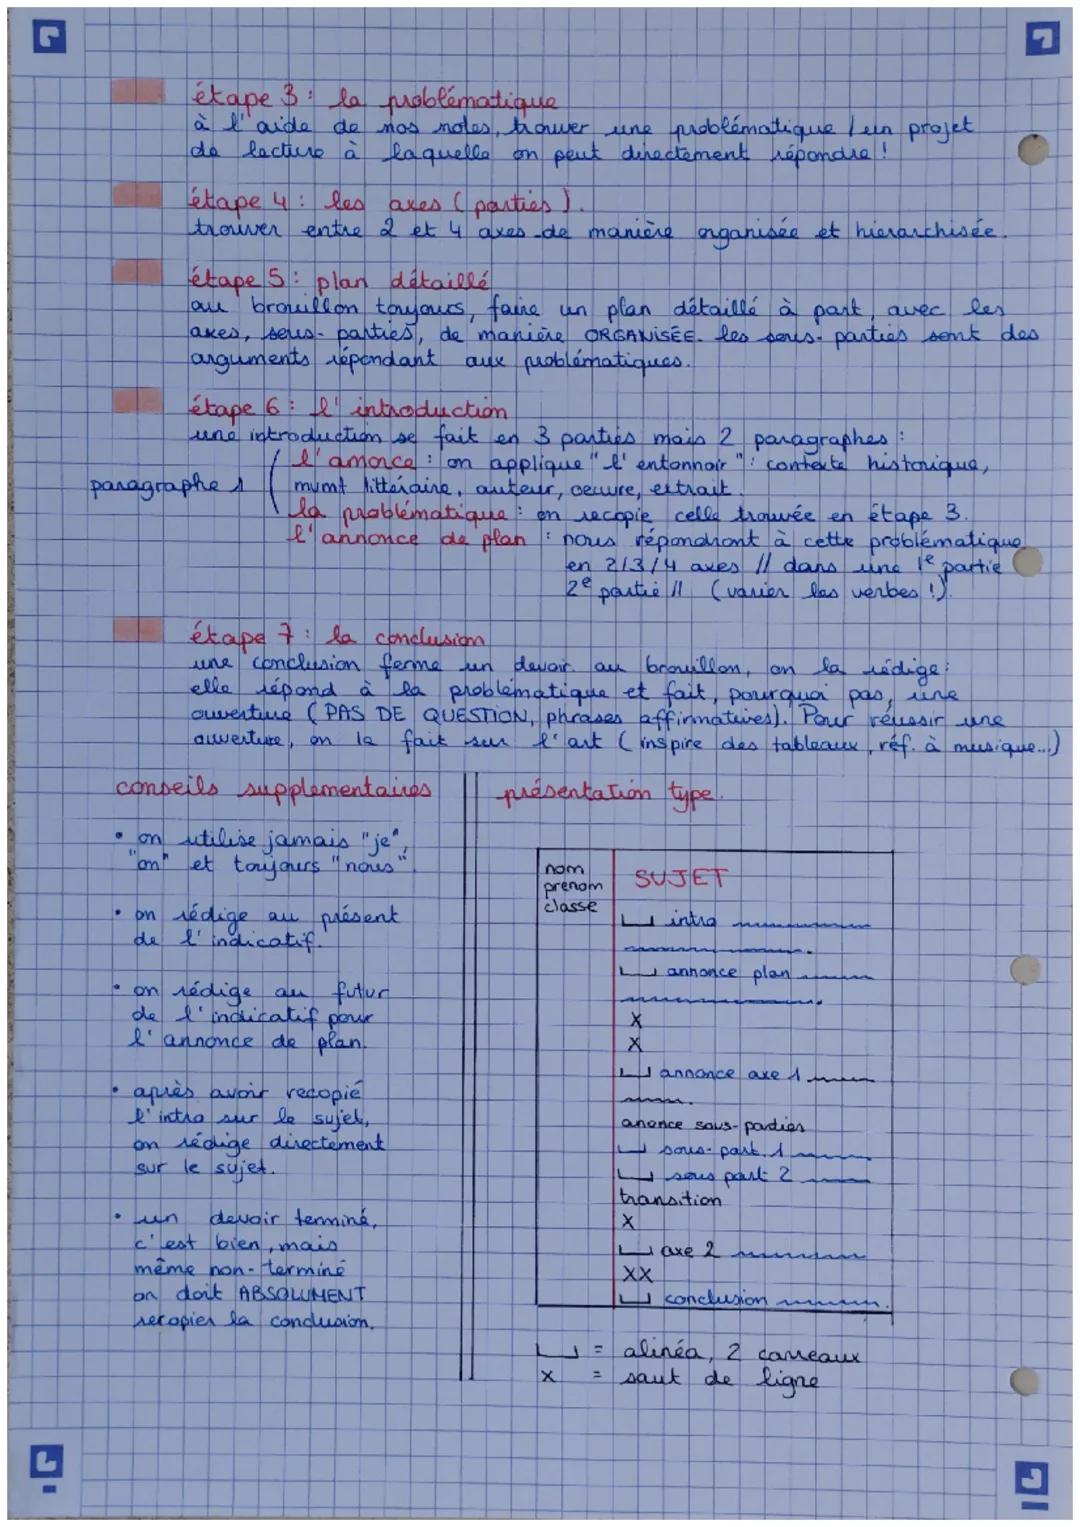 étape 3 : la problématique
à l'aide de nos notes, trouver une problématique / un projet
de lecture à laquelle on peut directement répondre !
étape 4 : les axes (parties).
trouver entre 2 et 4 axes de manière organisée et hiérarchisée.
étape 5 : plan détaillé
au brouillon toujours, faire un plan détaillé à part, avec les
axes, sous-parties, de manière ORGANISÉE. les sous-parties sont des
arguments répondant aux problématiques.
étape 6 : l'introduction
une introduction se fait en 3 parties mais 2 paragraphes :
l'amorce : on applique "l'entonnoir" : contexte historique,
paragraphe 1 mvmt littéraire, auteur, oeuvre, extrait.
la problématique : on recopie celle trouvée en étape 3.
l'annonce de plan : nous répondront à cette problématique
en 2/3/4 axes // dans une 1e partie
2e partie // (varier les verbes !).
étape 7 : la conclusion
une conclusion ferme un devoir. au brouillon, on la rédige :
elle répond à la problématique et fait, pourquoi pas, une
ouverture (PAS DE QUESTION, phrases affirmatives). Pour réussir une
ouverture, on la fait sur l'art (inspire des tableaux, réf. à musique...)
conseils supplémentaires
• on utilise jamais "je",
"on" et toujours "nous".
• on rédige au présent
de l'indicatif.
• on rédige au futur
de l'indicatif pour
l'annonce de plan.
• après avoir recopié
l'intro sur le sujet,
on rédige directement
sur le sujet.
• un devoir terminé,
c'est bien, mais
même non-terminé
on doit ABSOLUMENT
recopier la conclusion.
présentation type.
nom
prenom
classe
SUJET
intro
annonce plan
X
X
annonce axe 1
anonce sous-parties
sous-part. 1
sous part 2
transition
X
axe 2
XX
conclusion
= alinéa, 2 carreaux
x = saut de ligne